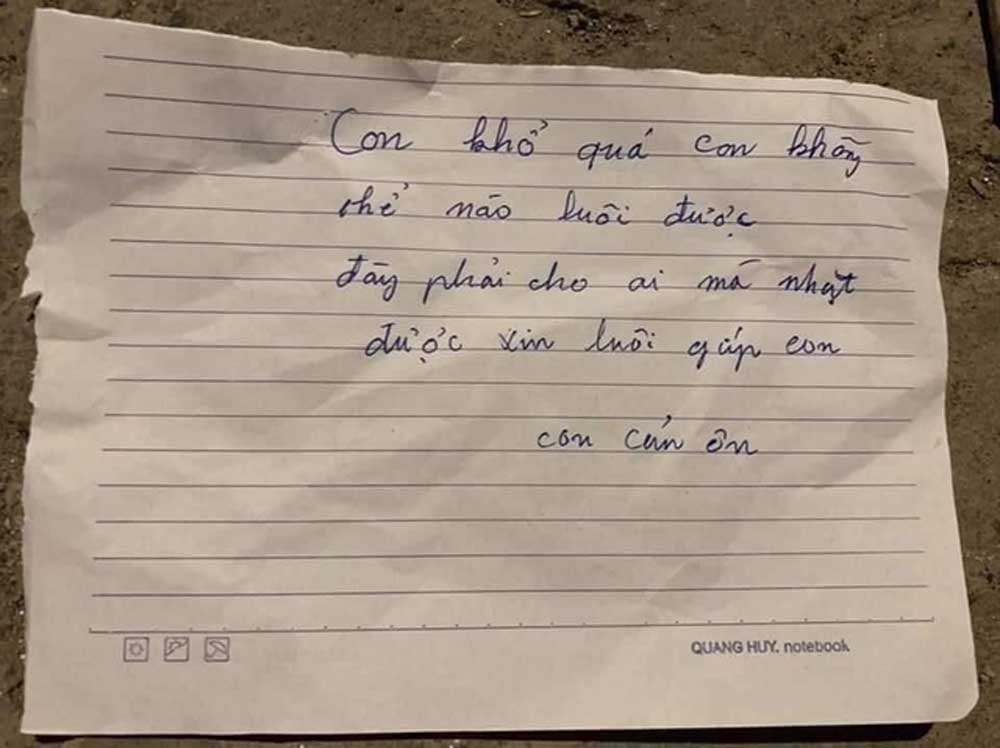 Con khổ quá con không
thể nào luôi được
đây phải cho ai mà nhạt
được xin luôi gúp con
con cán ơn
QUANG HUY. notebook